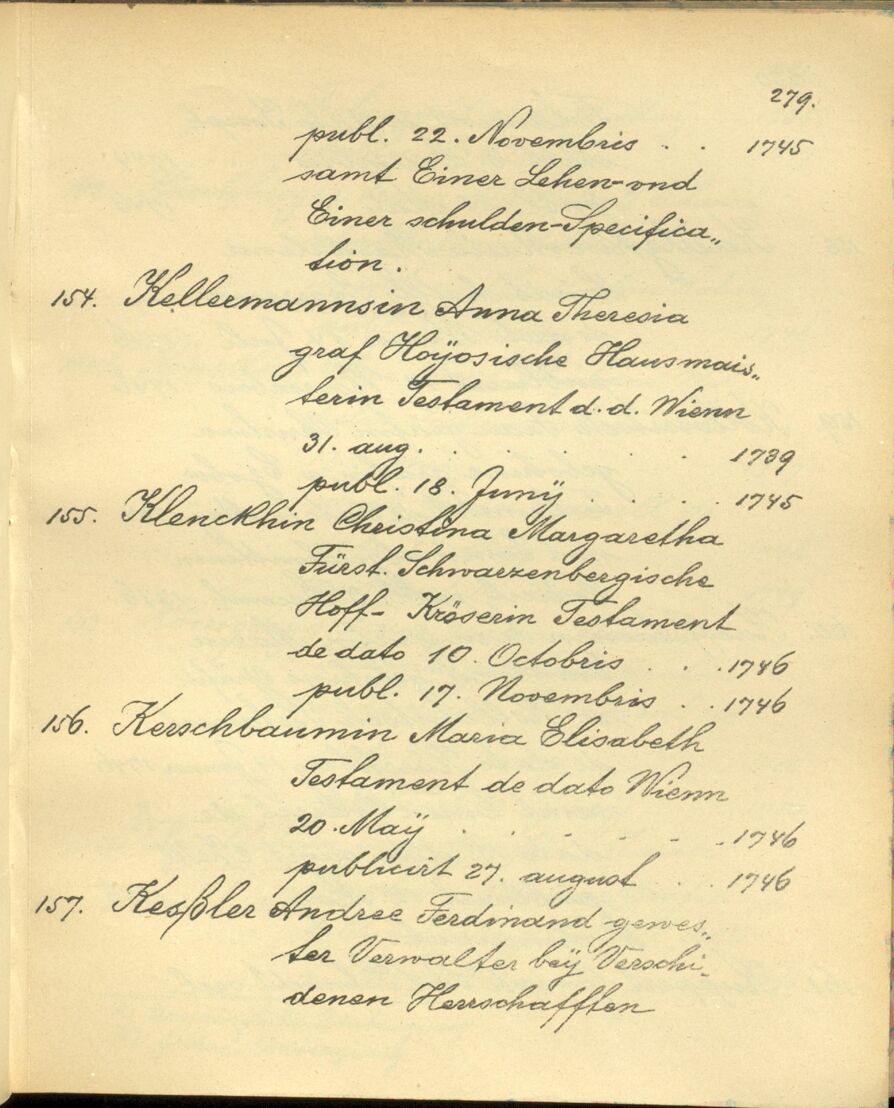 279.
publ. 22. Novembris . . 1745
samt Einer Lehen- und
Einer schulden-Specifica„
tion.
154. Kellermannsin Anna Theresia
graf Hoÿosische Hausmais„
terin Testament d. d. Wienn
31. aug. . . . . 1739
publ. 18. Junÿ . . . . 1745
155. Klenckhin Christina Margaretha
Fürst. Schwarzenbergische
Hoff- Kröserin Testament
de dato 10. Octobris . . . 1746
publ. 17. Novembris . . 1746
156. Kerschbaumin Maria Elisabeth
Testament de dato Wienn
20. Maÿ . . . . . 1746
publicirt 27. august . . 1746
157. Keßler Andree Ferdinand gewes„
ter Verwalter beÿ Verschi„
denen Herrschafften